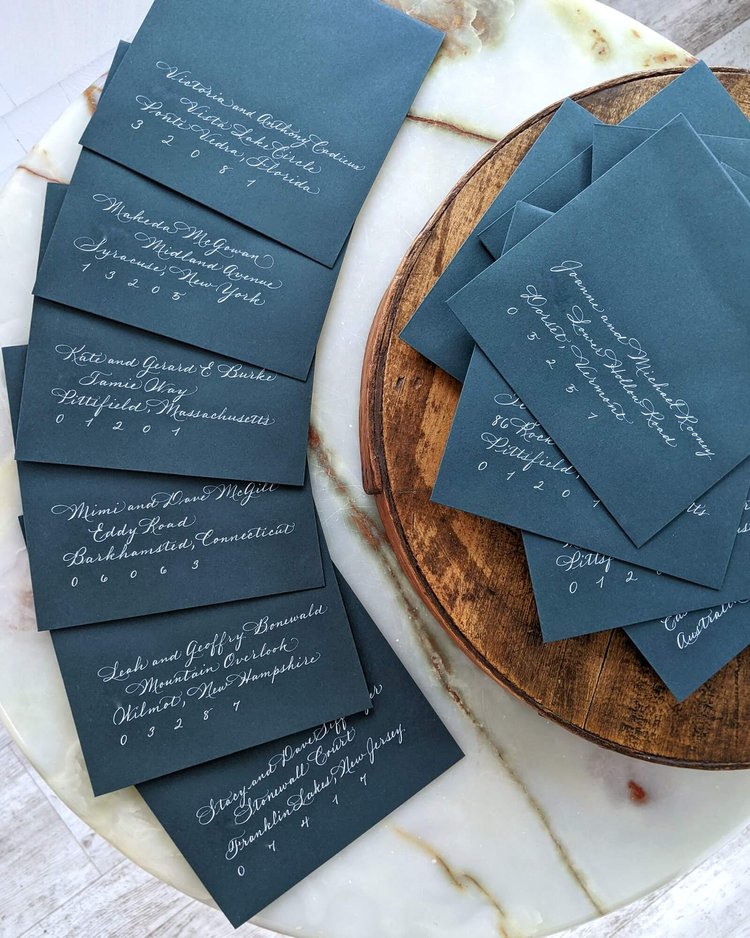 Victoria and Anthony Cadieux
Vista Lake Circle
Ponte Vedra, Florida
3 2 0 8 1
Makeda McGowan
Midland Avenue
Syracuse, New York
1 3 2 0 5
Kate and Gerard E Burke
Tamie Way
Pittsfield, Massachusetts
0 1 2 0 1
Mimi and Dave McGill
Eddy Road
Barkhamsted, Connecticut
0 6 0 6 3
Leah and Geoffry Bonewald
Mountain Overlook
Wilmot, New Hampshire
0 3 2 8 7
Stacy and Dave
Stonewall Court
Franklin Lakes, New Jersey
0 7 4 1 7
Joanne and Michael Rooney
Lower Hollow Road
Dorset, Vermont
0 5 2 5 1
86 Rock
Pittsfield,
0 1 2 0 1
Pittsf
0 1 2
Australia